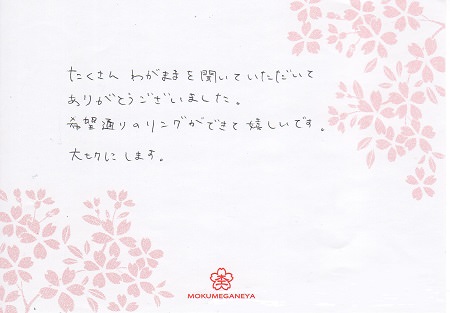 たくさん わがままを聞いていただいて
ありがとうございました。
希望通りのリングができて嬉しいです。
大切にします。
MOKUMEGANEYA